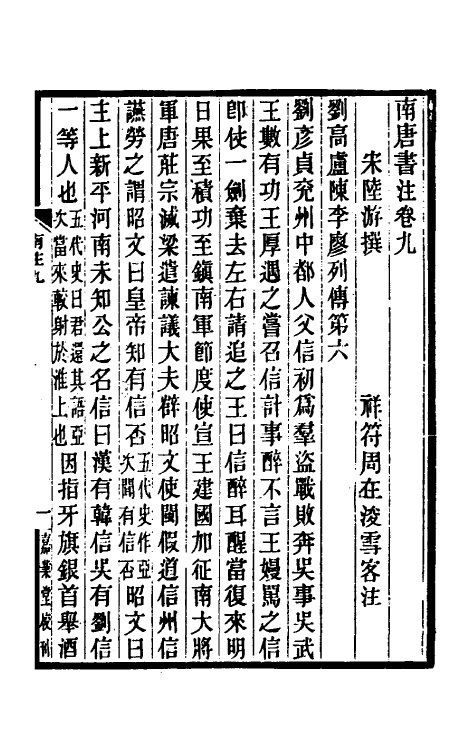 南唐書注卷九
宋陸游撰　祥符周在浚雪客注
劉高盧陳李廖列傳第六
劉彥貞兗州中都人父信初爲羣盜戰敗奔吳事吳武
王數有功王厚遇之嘗召信計事醉不言王嫚罵之信
卽仗一劍棄去左右請追之王曰信醉耳醒當復來明
日果至積功至鎭南軍節度使宣王建國加征南大將
軍唐莊宗滅梁遣諫議大夫薛昭文使閩假道信州信
讌勞之謂昭文曰皇帝知有信否五代史作亞次聞有信否昭文曰
主上新平河南未知公之名信曰漢有韓信吳有劉信
一等人也五代史曰君還其語亞次當來較射於淮上也因指牙旗銀首舉酒
南注九
一
嘉業堂校刊